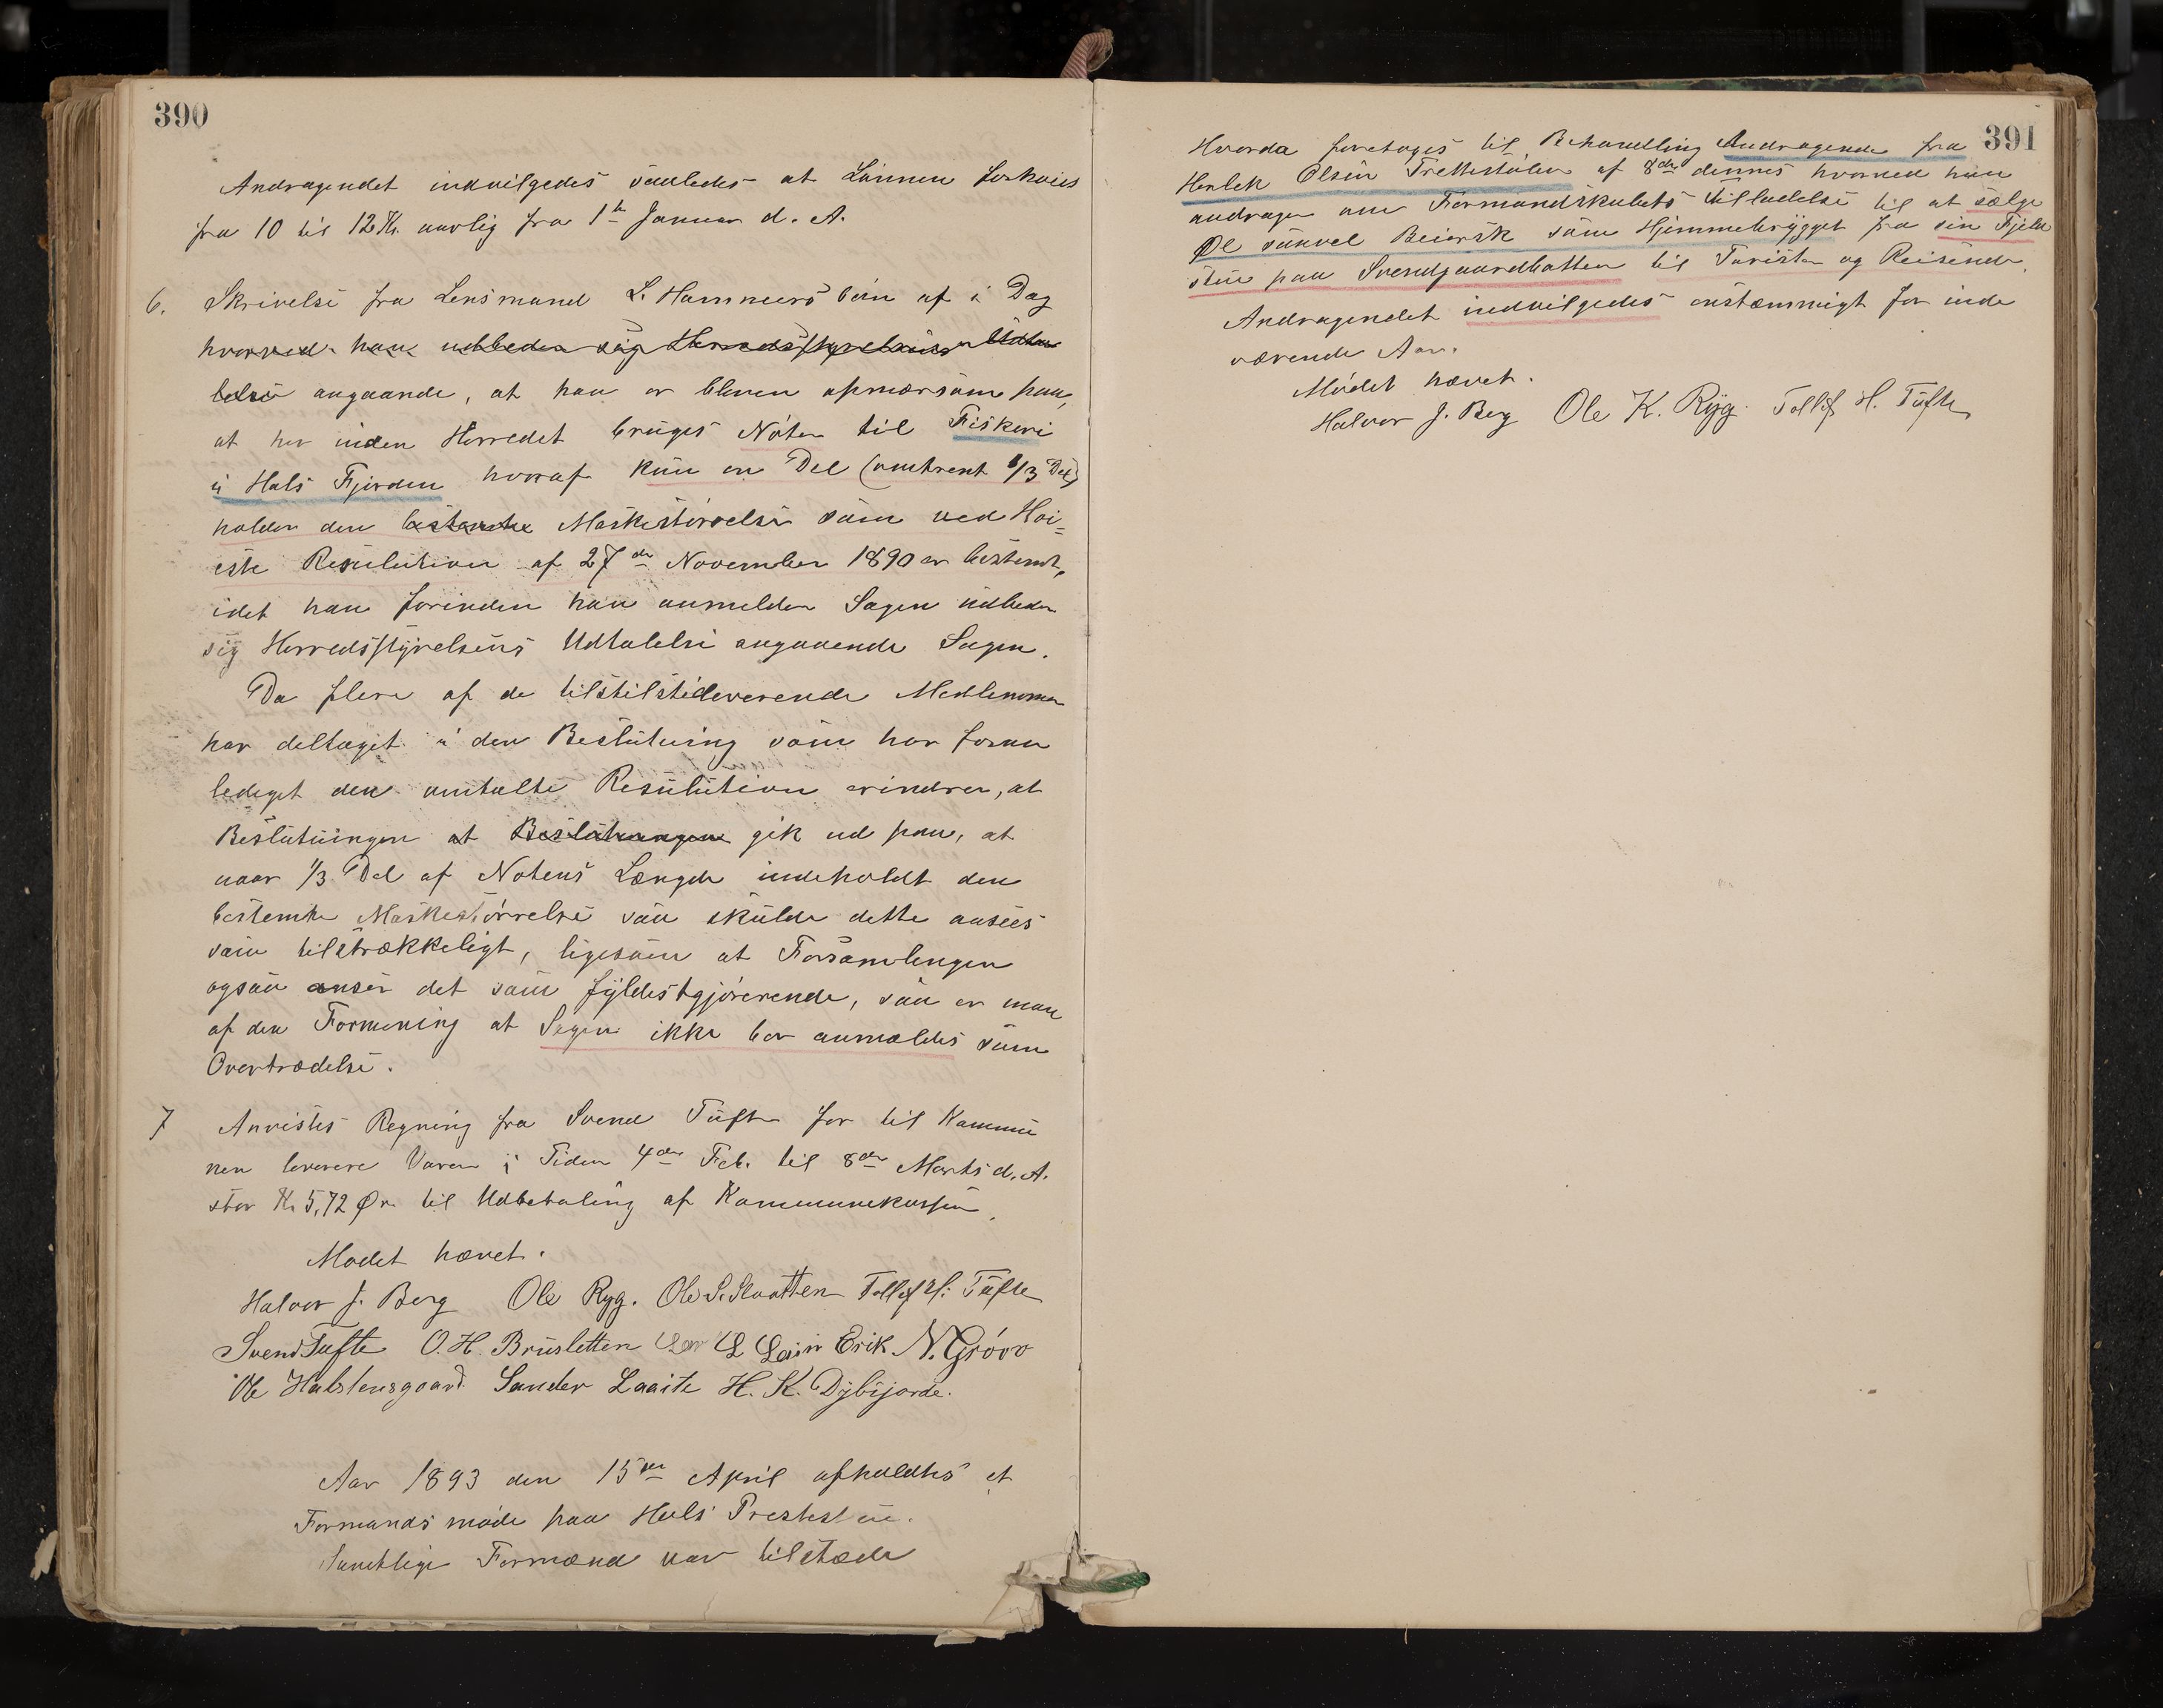 390
Andragendet indvilgedes saaledes at Lönnen forhöies
fra 10 til 12 Kr. aarlig fra 1ste Januar d. A.
6. Skrivelse fra Lensmand L. Hammersbön af i Dag
hvorved han udbeder sig Herredsstyrelsens Udta
lelse angaaende, at han er bleven opmærsom paa,
at her inden Herredet bruges Nöter til Fiskeri
i Hols Fjorden hvoraf kun en Del (omtrent 1/3 Del)
holder den bestemte Maskestörrelse som ved Høi=
este Resulution af 27de November 1890 er bestemt,
idet han forinden han anmelder Sagen udbeder
sig Herredsstyrelsens Udtalelse angaaende Sagen.
Da flere af de tilstilstedeverende Medlemmer
har deltaget i den Beslutning som har foran
lediget den omtalte Resulution erindrer, at
Beslutningen at Beslutningen gik ud paa, at
naar 1/3 Del af Notens Længde indeholdt den
bestemte Maskestörrelse saa skulde dette ansees
som tilstrækkeligt, ligesom at Forsamlingen
ogsaa anser det som fyldestgjörerende, saa er man
af den Formening at Sagen ikke bør anmældes som
Overtrædelse.
7 Anvistes Regning fra Svend Tufte for til Kommu
nen leverere Varer i Tiden 4de Feb. til 8de Marts d. A.
stor Kr. 5,72 Øre til Udbetaling af Kommunekassen.
Modet hævet.
Halvor J. Berg Ole Ryg. Ole S. Slaatten Tollef H. Tufte
Svend Tufte O. H. Brusletten Lars L Lein Erik N. Gróvo
Ole Halstensgaard. Sander Laaite H. K. Dybsjorde.
Aar 1893 den 15de April afholdtes et
Formandsmöde paa Hols Prestestue.
Samtlige Formænd var tilstæde
391
Hvorda foretoges til Behandling Andragende fra
Herlek Olsen Trettestölen af 8de dennes hvorved han
andrager om Formandskabets tilladelse til at sælge
Øl saavel Beiersk som Hjemmebrygget fra sin Fjeld
stue paa Svendgaardbotten til Turister og Reisende.
Andragendet indvilgedes enstæmmigt for inde
værende Aar.
Mödet hævet.
Halvor J. Berg Ole K. Ryg. Tollef H. Tufte